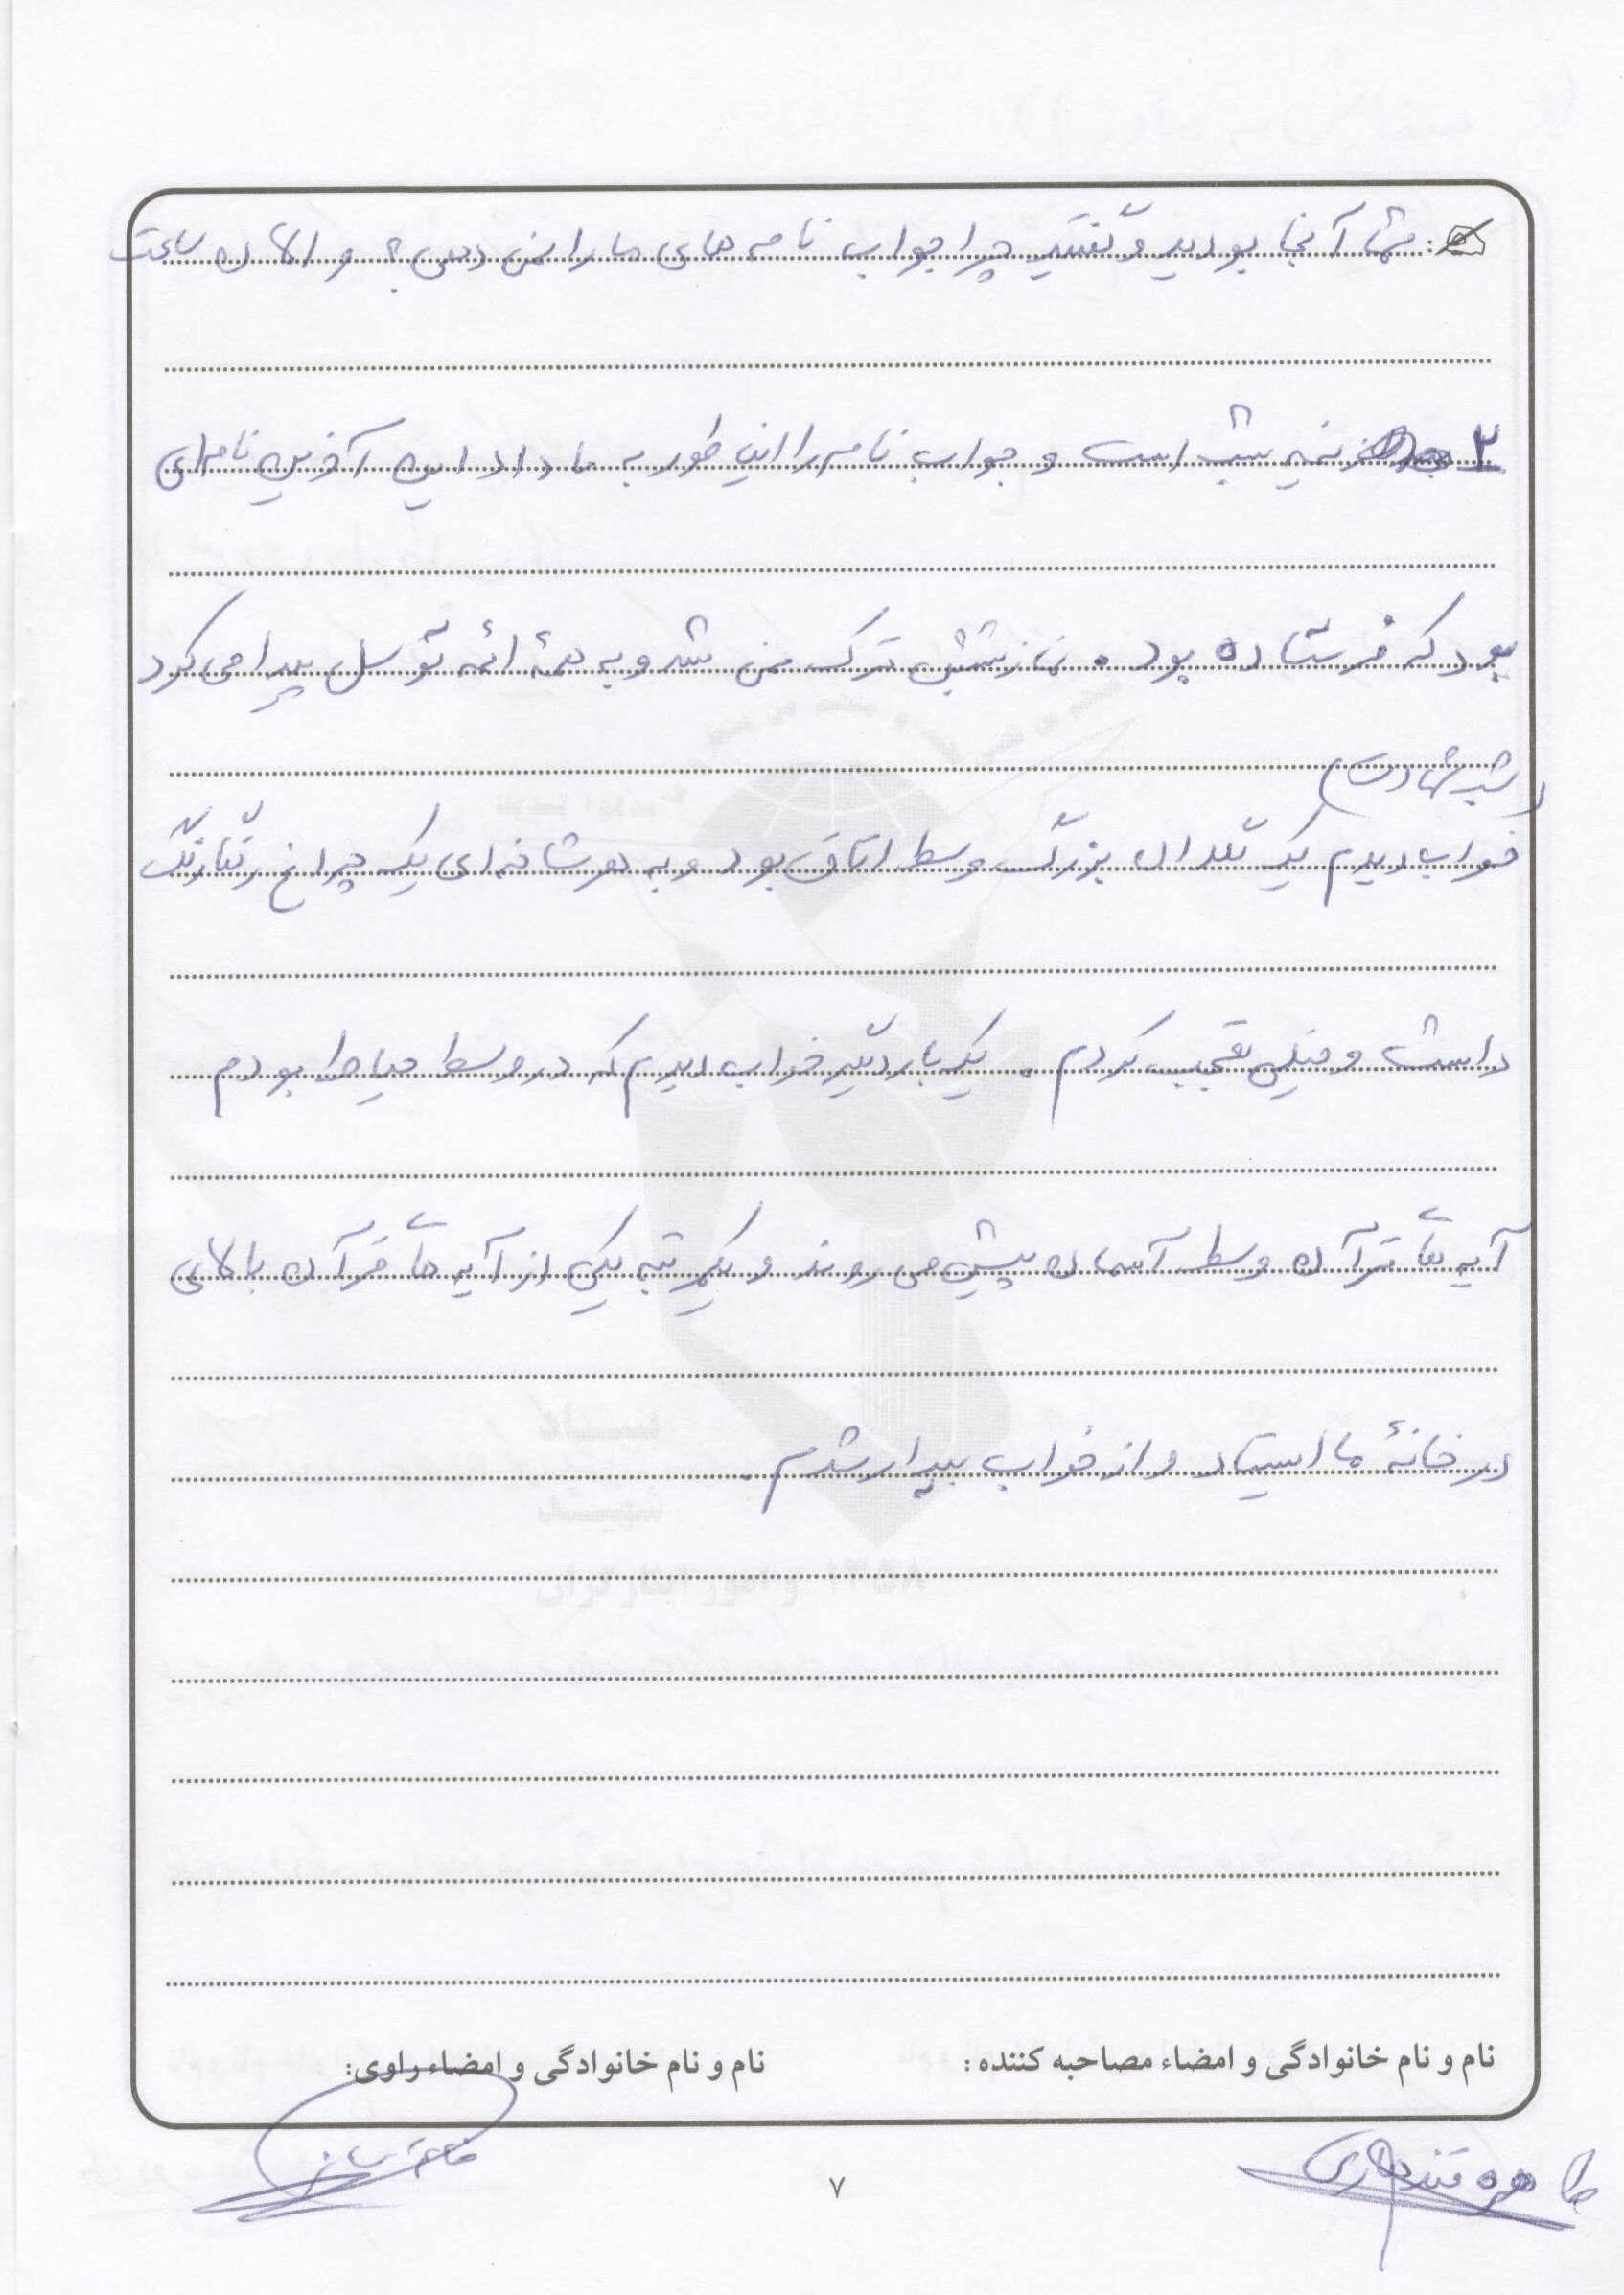 شما آنجا بودید و گفتید چرا جواب نامه های ما را نمی دهی؟ و الان ساعت
۲ نیمه شب است و جواب نامه را این طور به ما داد این آخرین نامه‌ای
بود که فرستاده بود. نماز شبش ترک نمی شد و به همهٔ ائمه توسل پیدا می کرد
(شب شهادت)
خواب دیدم یک گلدان بزرگ وسط اتاق بود و به هر شاخه ای یک چراغ رنگارنگ
داشت و خیلی تعجب کردم. یک بار دیگر خواب دیدم که در وسط حیاط بودم
آیه های قرآن وسط آسمان پیش می روند و یکمرتبه یکی از آیه های قرآن بالای
در خانهٔ ما ایستاد و از خواب بیدار شدم.
نام و نام خانوادگی و امضاء مصاحبه کننده:
نام و نام خانوادگی و امضاء راوی:
طاهره قندهاری
۷